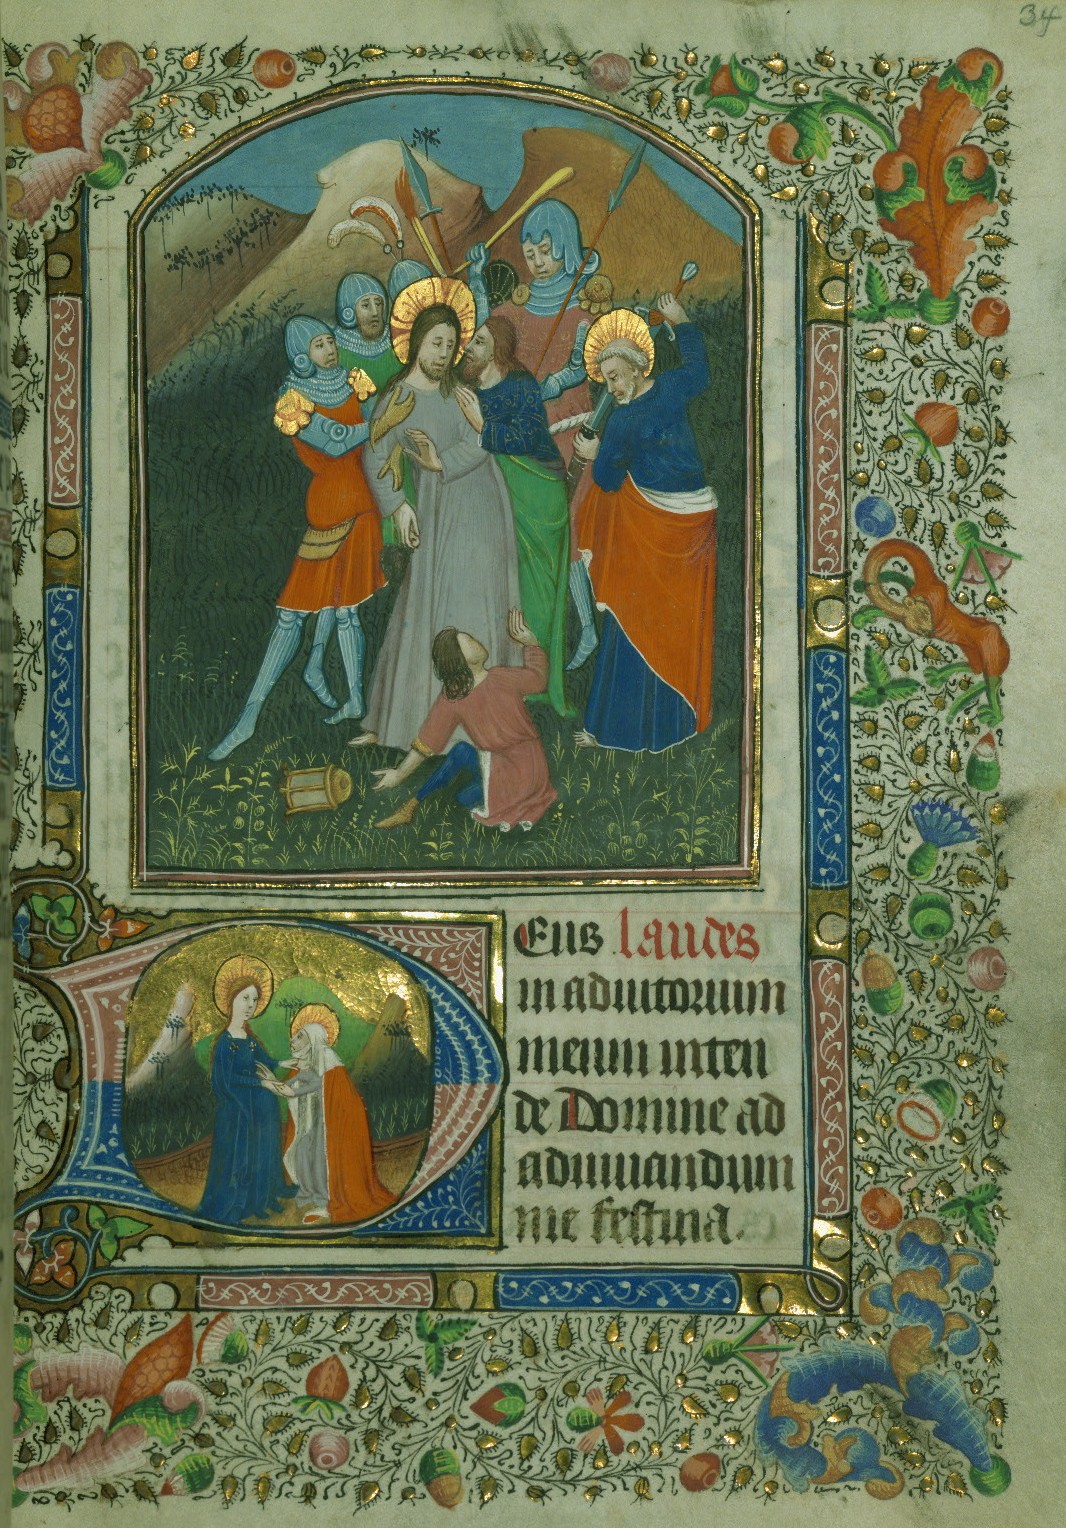 34
Eus. laudes
in adiutorium
meum inten
de Domine ad
adiuuandum
me festina.